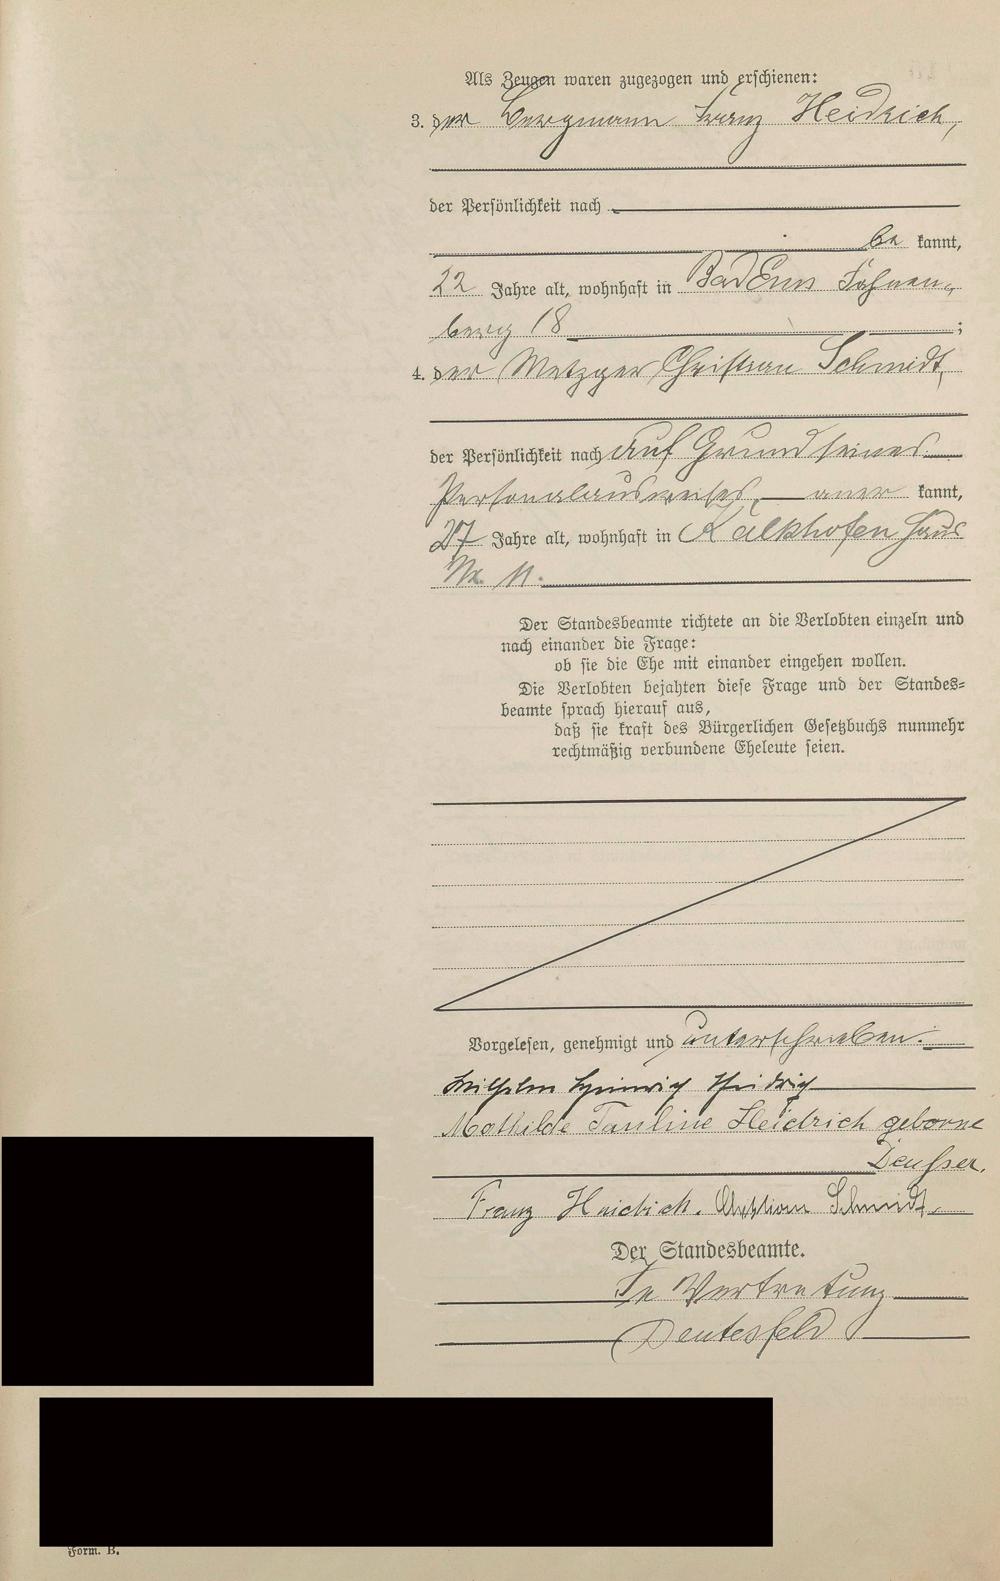 Als Zeugen waren zugezogen und erschienen:
3. der Bergmann Franz Heidrich,
der Persönlichkeit nach
be kannt,
22 Jahre alt, wohnhaft in Bad Ems Fahnen-
berg 18 ;
4. der Metzger Christian Schmidt,
der Persönlichkeit nach auf Grund seines
Personalausweises, aner kannt,
27 Jahre alt, wohnhaft in Kalkhofen Haus
Nr. 11.
Der Standesbeamte richtete an die Verlobten einzeln und
nach einander die Frage:
ob sie die Ehe mit einander eingehen wollen.
Die Verlobten bejahten diese Frage und der Standes-
beamte sprach hierauf aus,
daß sie kraft des Bürgerlichen Gesetzbuchs nunmehr
rechtmäßig verbundene Eheleute seien.
Vorgelesen, genehmigt und unterschrieben.
Wilhelm Heinrich Heidrich
Mathilde Pauline Heidrich geborne
Deusser.
Franz Heidrich. Christian Schmidt.
Der Standesbeamte.
In Vertretung
Deutesfeld
Form. B.